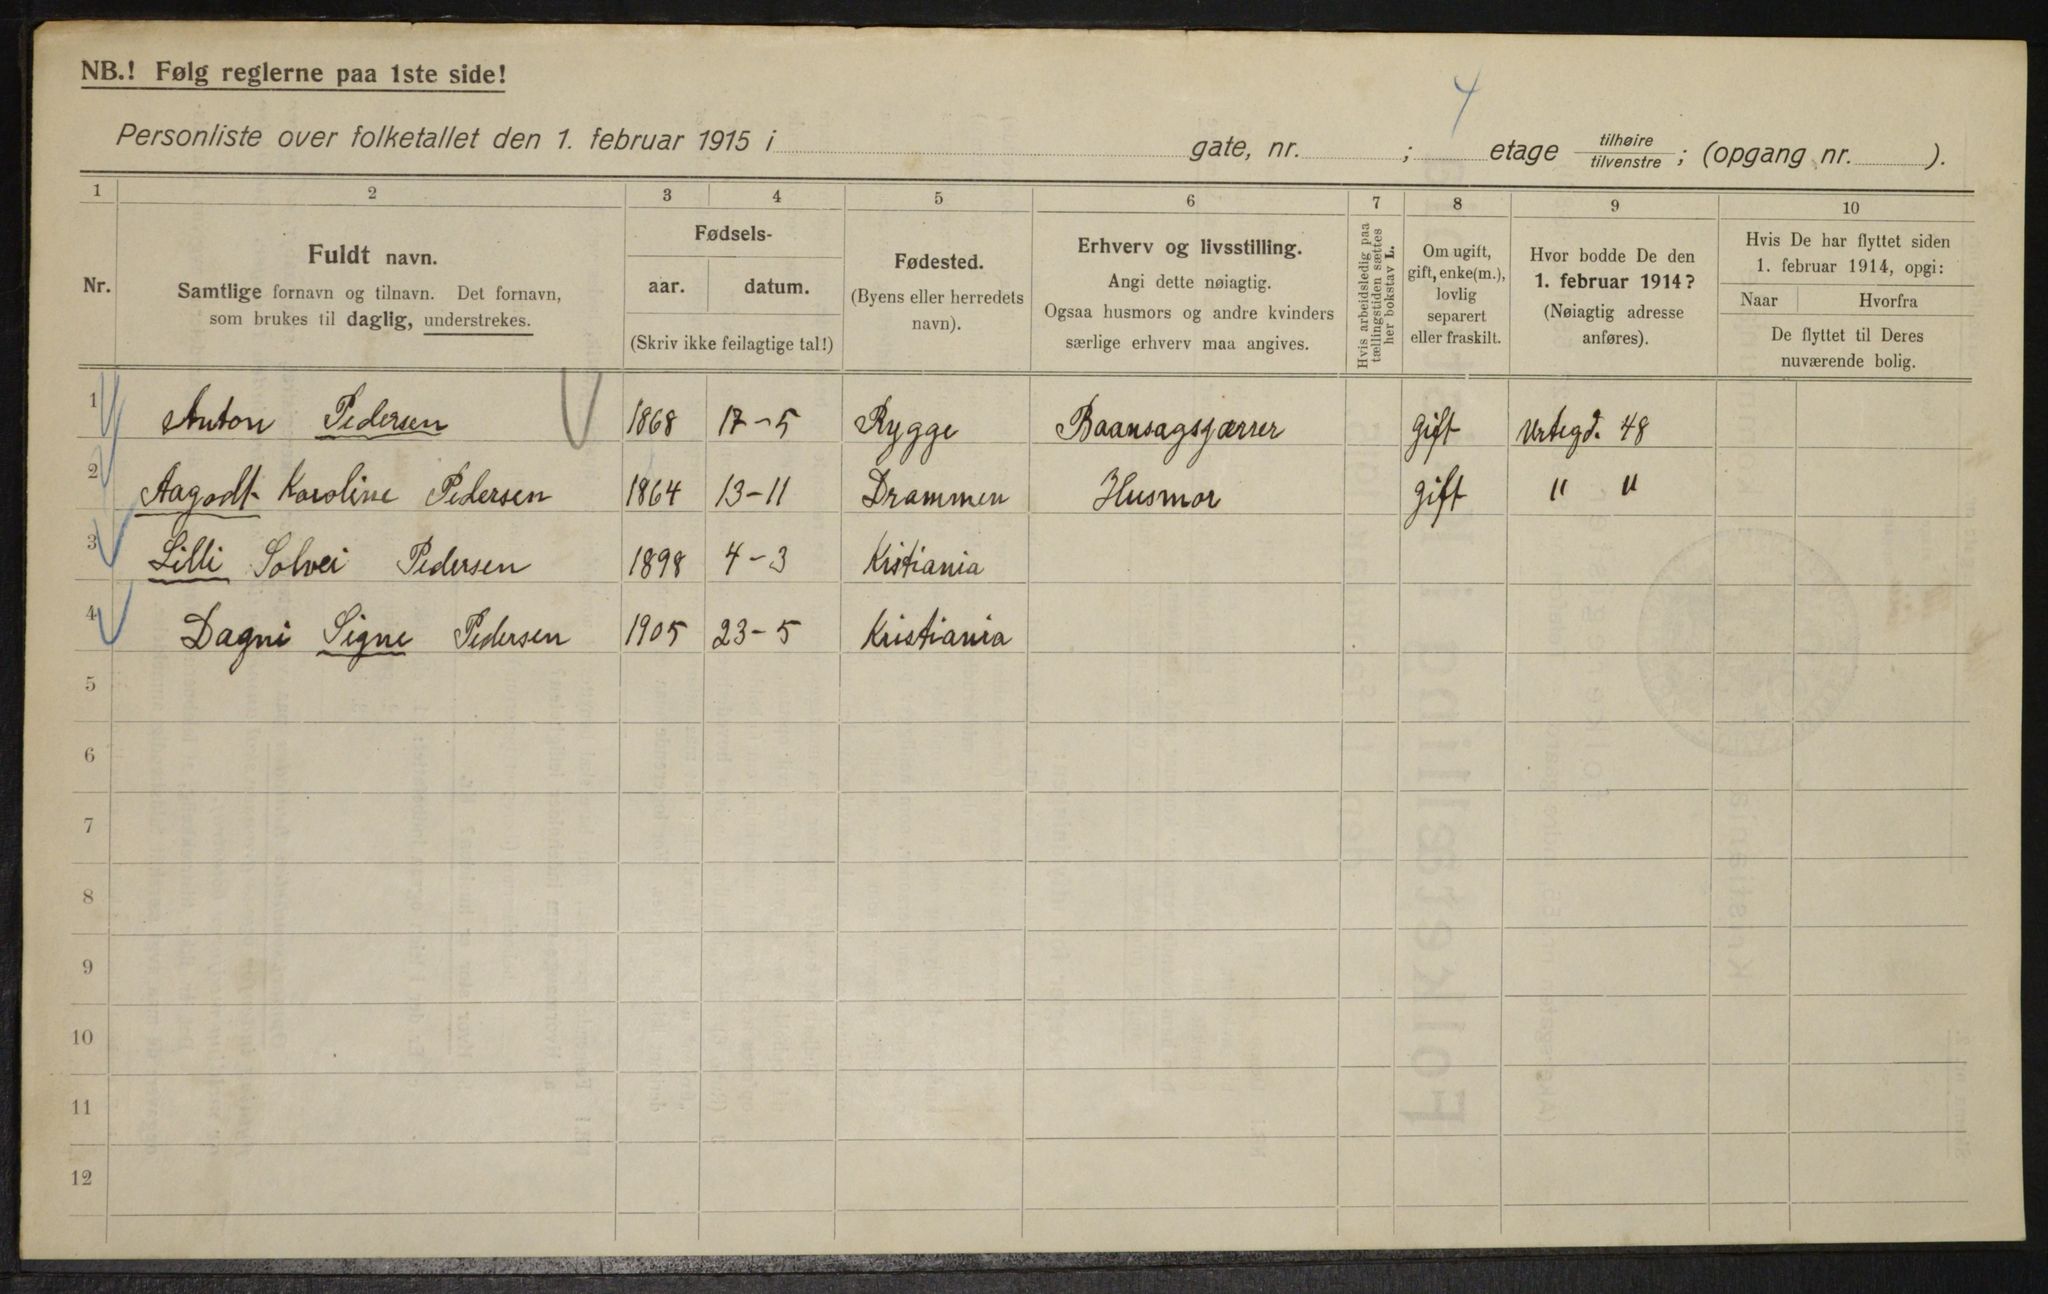 NB.! Følg reglerne paa 1ste side!
4
Personliste over folketallet den 1. februar 1915 i gate, nr. ; etage tilhøire / tilvenstre ; (opgang nr. ).
1 2 3 4 5 6 7 8 9 10
Nr.
Fuldt navn.
Samtlige fornavn og tilnavn. Det fornavn,
som brukes til daglig, understrekes.
Fødsels-
aar. datum.
(Skriv ikke feilagtige tal!)
Fødested.
(Byens eller herredets
navn).
Erhverv og livsstilling.
Angi dette nøiagtig.
Ogsaa husmors og andre kvinders
særlige erhverv maa angives.
Hvis arbeidsledig paa
tællingstiden sættes
her bokstav L.
Om ugift,
gift, enke(m.),
lovlig
separert
eller fraskilt.
Hvor bodde De den
1. februar 1914?
(Nøiagtig adresse
anføres).
Hvis De har flyttet siden
1. februar 1914, opgi:
Naar Hvorfra
De flyttet til Deres
nuværende bolig.
1 Anton Pedersen 1868 17-5 Rygge Baansagsgjærrer gift Urtegd. 48
2 Aagodt Karoline Pedersen 1864 13-11 Drammen Husmor gift " "
3 Lilli Solvei Pedersen 1898 4-3 Kistiania
4 Dagni Signe Pedersen 1905 23-5 Kristiania
5
6
7
8
9
10
11
12